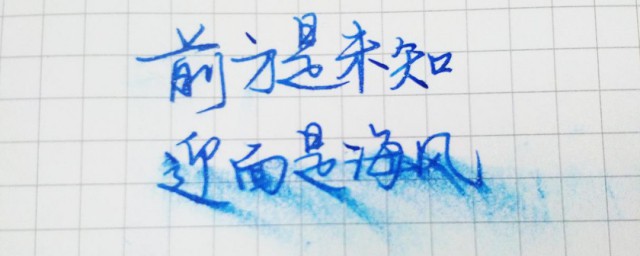 前方是未知
迎面是海风